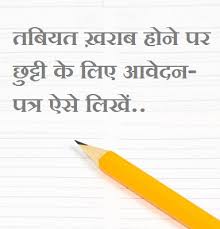 तबियत ख़राब होने पर
छुट्टी के लिए आवेदन-
पत्र ऐसे लिखें..